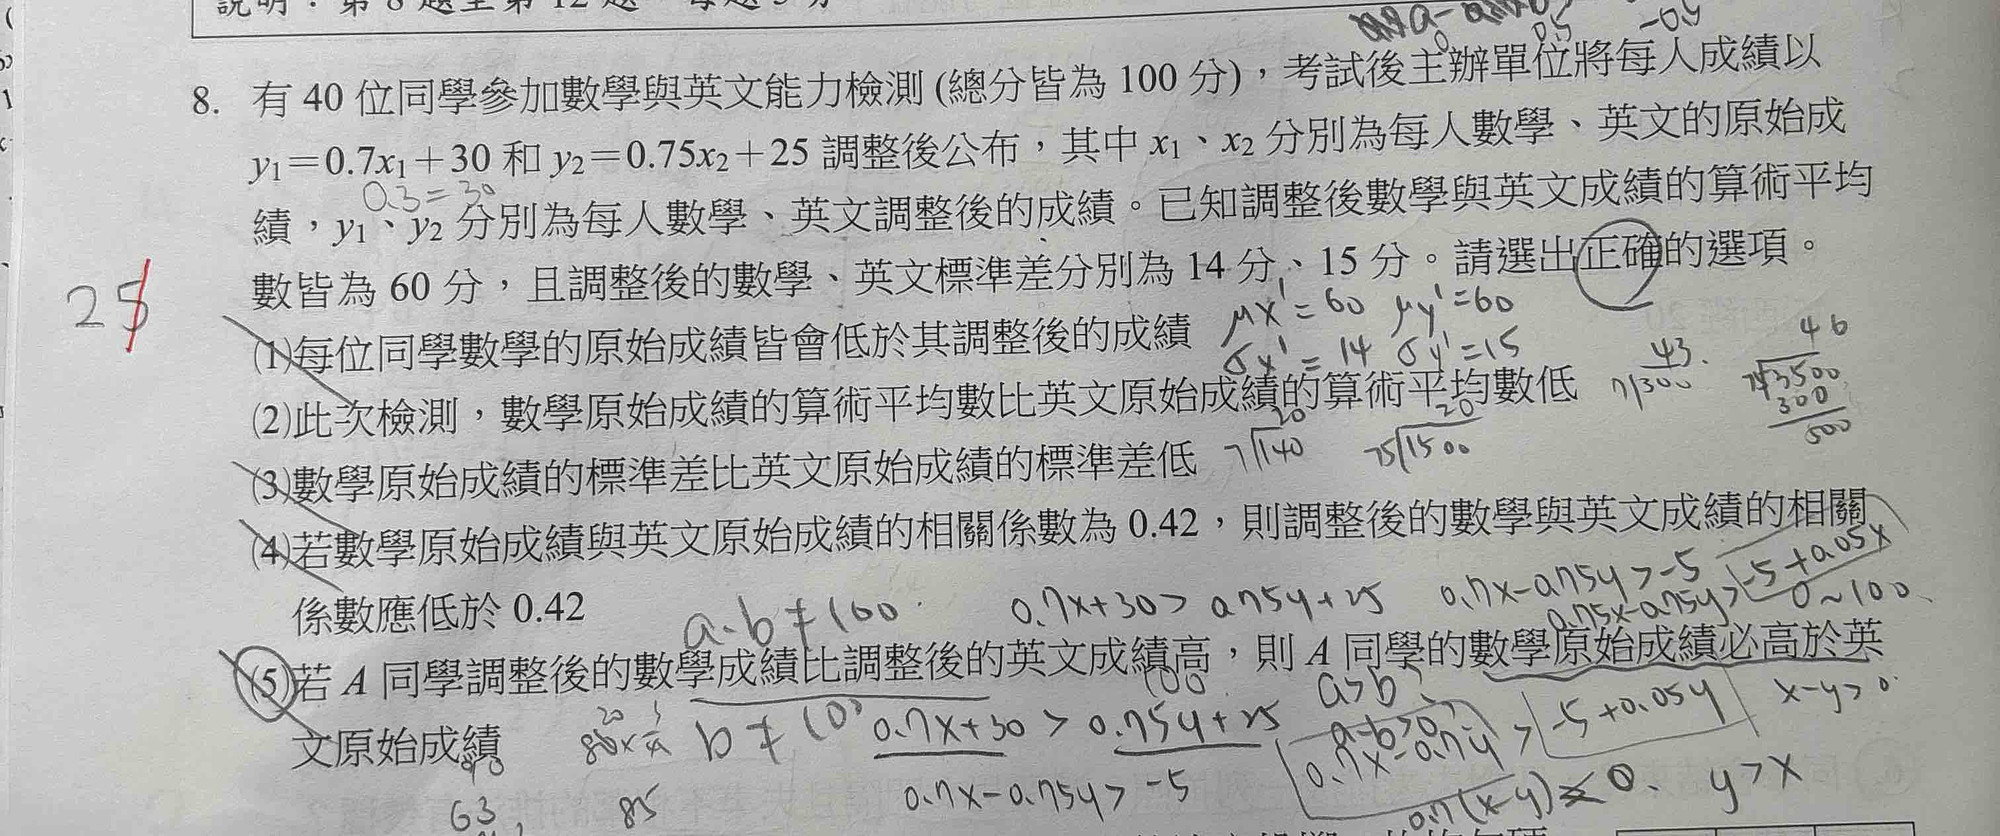 說明：第 8 題至第 12 題，每題 5 分
8. 有 40 位同學參加數學與英文能力檢測 (總分皆為 100 分)，考試後主辦單位將每人成績以
y₁＝0.7x₁＋30 和 y₂＝0.75x₂＋25 調整後公布，其中 x₁、x₂ 分別為每人數學、英文的原始成
0.3=30
績，y₁、y₂ 分別為每人數學、英文調整後的成績。已知調整後數學與英文成績的算術平均
數皆為 60 分，且調整後的數學、英文標準差分別為 14 分、15 分。請選出正確的選項。
25
μx'=60 μy'=60
(1)每位同學數學的原始成績皆會低於其調整後的成績
σx'=14 σy'=15
43.
46
7/300
3500
300
500
(2)此次檢測，數學原始成績的算術平均數比英文原始成績的算術平均數低
20 20
(3)數學原始成績的標準差比英文原始成績的標準差低
7/140 75/1500
(4)若數學原始成績與英文原始成績的相關係數為 0.42，則調整後的數學與英文成績的相關
係數應低於 0.42
a.b≠100
0.7x+30>0.75y+25
0.7x-0.75y>-5
0.75x-0.75y>-5+0.05x
0~100
(5)若 A 同學調整後的數學成績比調整後的英文成績高，則 A 同學的數學原始成績必高於英
文原始成績
100
a>b
a-b>0
b≠100
0.7x+30>0.75y+25
0.7x-0.7y>-5+0.05y
x-y>0
0.7x-0.75y>-5
0.7(x-y)
0.
y>x
63
85